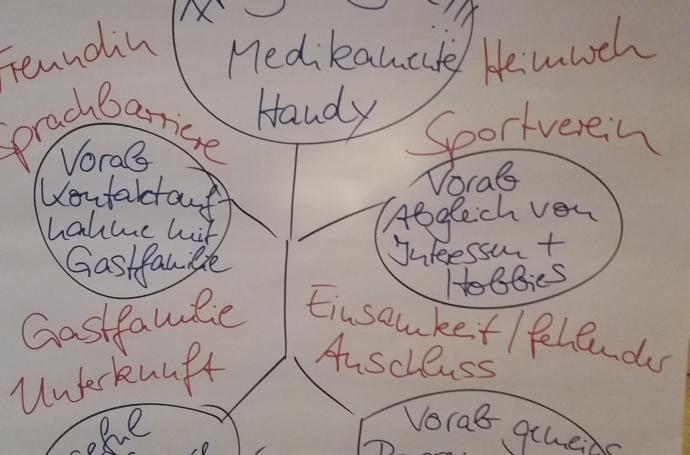 Medikamente
Handy
Freundin
Heimweh
Sprachbarriere
Sportverein
Vorab
Kontaktauf-
nahme mit
Gastfamilie
Vorab
Abgleich von
Interessen +
Hobbies
Gastfamilie
Unterkunft
Einsamkeit/fehlender
Anschluss
Vorab